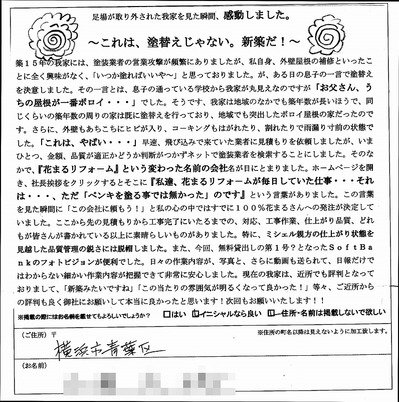 足場が取り外された我家を見た瞬間、感動しました。
～これは、塗替えじゃない。新築だ！～
築１５年の我家には、塗装業者の営業攻撃が頻繁にありましたが、私自身、外壁屋根の補修といったこ
とに全く興味がなく、「いつか塗ればいいや～」と思っておりました。が、ある日の息子の一言で塗替え
を決意しました。その一言とは、息子の通っている学校から我家が丸見えなのですが「お父さん、う
ちの屋根が一番ボロイ・・・」でした。そうです、我家は地域のなかでも築年数が長いほうで、同
じくらいの築年数の周りの家は既に塗替えを行っており、地域でも突出したボロイ屋根の家だったので
す。さらに、外壁もあちこちにヒビが入り、コーキングもはがれたり、割れたりで雨漏り寸前の状態で
した。「これは、やばい・・・」早速、飛び込みで来ていた業者に見積もりを依頼しましたが、いま
ひとつ、金額、品質が適正かどうか判断がつかずネットで塗装業者を検索することにしました。そのなか
で、『花まるリフォーム』という変わった名前の会社名が目にとまりました。ホームページを開
き、社長挨拶をクリックするとそこに『私達、花まるリフォームが毎日していた仕事・・・それ
は・・・、ただ「ペンキを塗る事では無かった」のです』という言葉がありました。この言葉
を見た瞬間に「この会社に頼もう！」と私の心の中ではすでに１００％花まるさんへの発注が決定してい
ました。ここから先の見積もりから工事完了にいたるまでの、対応、工事作業、仕上がり品質、どれ
もが皆さんが書かれている以上に素晴らしいものがありました。特に、ミシェル親方の仕上がり状態を
見越した品質管理の鋭さには脱帽しました。また、今回、無料貸出しの第１号？となったＳｏｆｔＢａ
ｎｋのフォトビジョンが便利でした。日々の作業内容が、写真と、さらに動画も送られて、日報だけで
はわからない細かい作業内容が把握できて非常に安心しました。現在の我家は、近所でも評判となって
おりまして、「新築みたいですね」「この辺りの雰囲気が明るくなって良かった！」等々、ご近所から
の評判も良く御社にお願いして本当に良かったと思います！次回もお願いいたします！！
※掲載の際にはお名前を載せてもよろしいでしょうか？　□はい　□イニシャルなら良い　□住所・名前は掲載しないで欲しい
（ご住所）〒　※住所の町名以降は見えないように加工致します。
横浜市青葉区
（お名前）